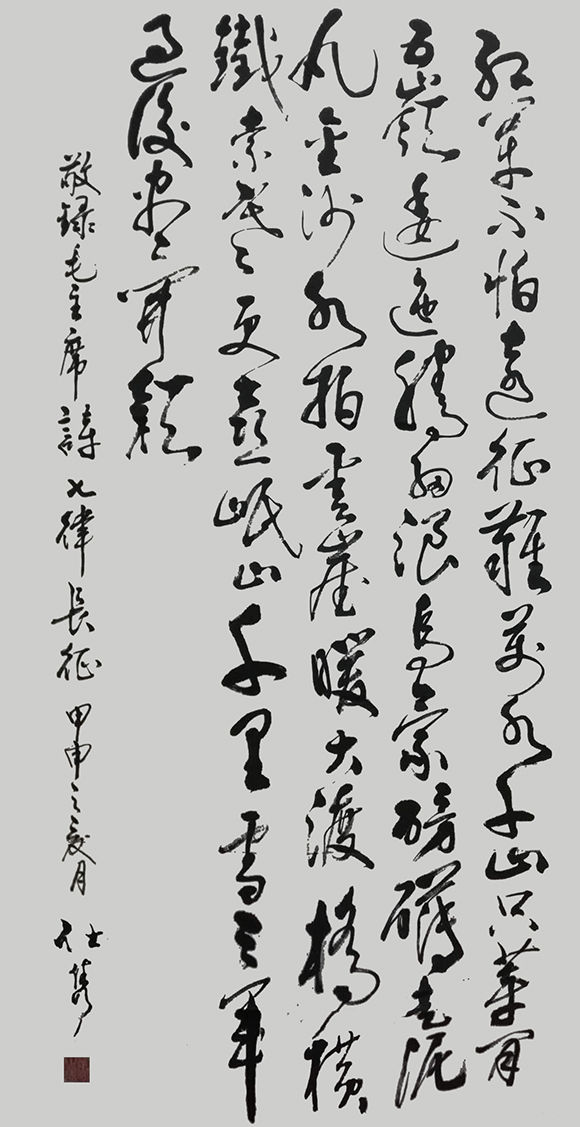 紅軍不怕遠征難萬水千山只等閒
五嶺逶迤騰細浪烏蒙磅礴走泥
丸金沙水拍雲崖暖大渡橋橫
鐵索寒更喜岷山千里雪三軍
過後盡開顏
敬録毛主席詩七律長征 甲申之夏月